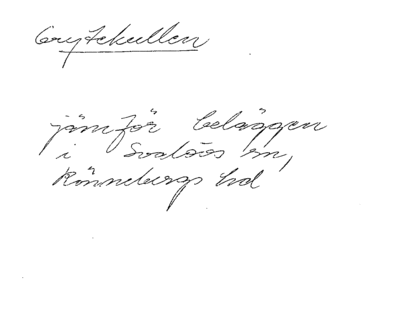 Grytekullen
jämför beläggen
i Svalövs sn,
Rönnebergs hd